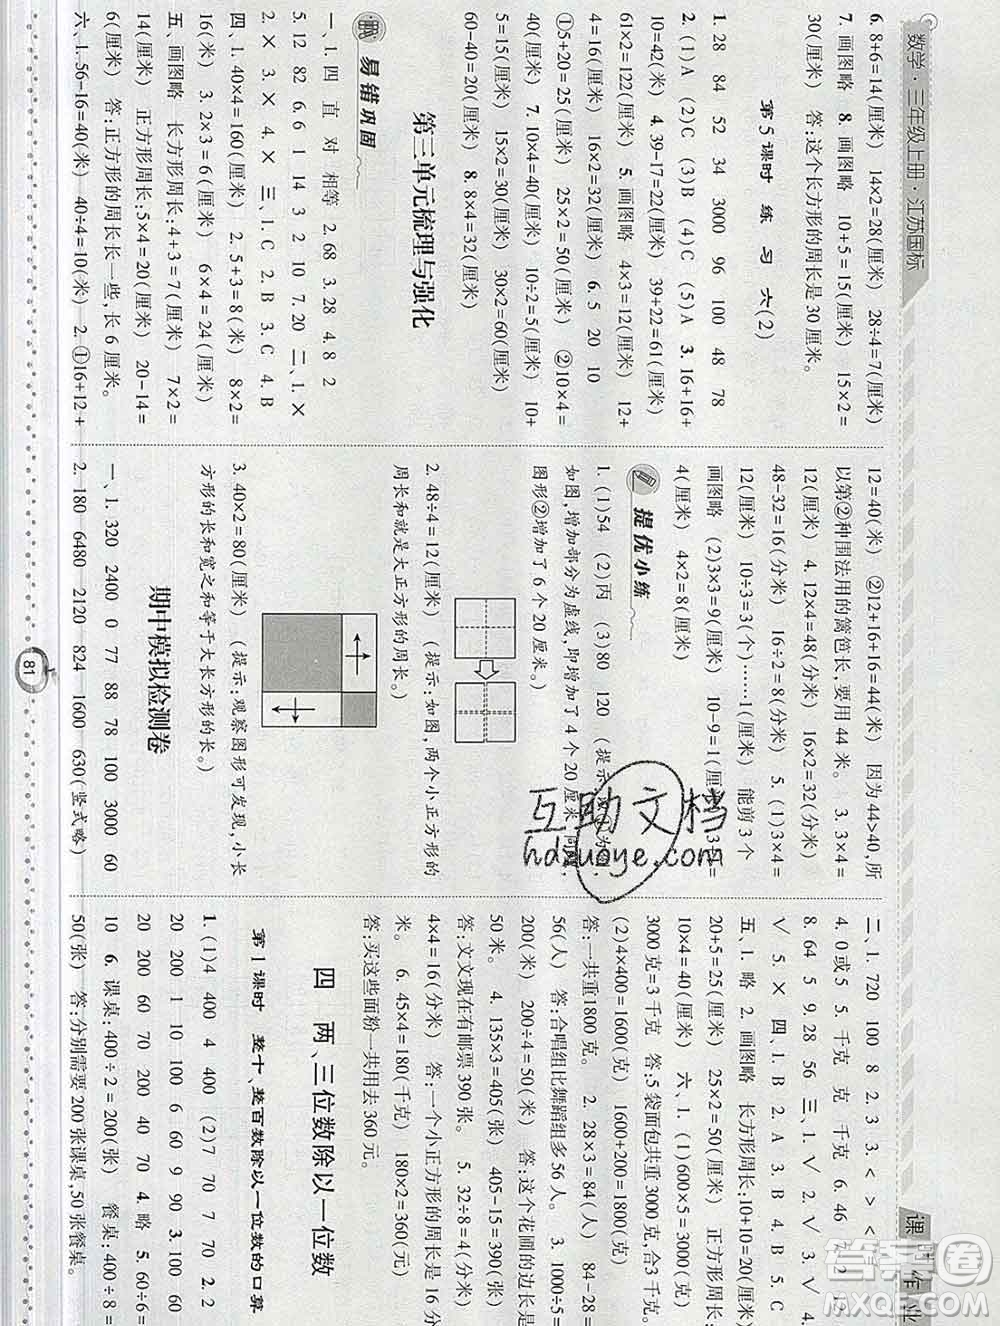 数学·三年级上册·江苏国标
6. 8+6=14(厘米) 14×2=28(厘米) 28÷4=7(厘米)
7. 画图略 8. 画图略 10+5=15(厘米) 15×2=
30(厘米) 答:这个长方形的周长是30厘米。
第5课时 练 习 六(2)
1. 28 84 52 34 3000 96 100 48 78
2. (1)A (2)C (3)B (4)C (5)A 3. 16+16+
10=42(厘米) 4. 39-17=22(厘米) 39+22=61(厘米)
61×2=122(厘米) 5. 画图略 4×3=12(厘米) 12+
4=16(厘米) 16×2=32(厘米) 6. 5 20 10
①5+20=25(厘米) 25×2=50(厘米) ②10×4=
40(厘米) 7. 10×4=40(厘米) 10÷2=5(厘米) 10+
5=15(厘米) 15×2=30(厘米) 30×2=60(厘米)
60-40=20(厘米) 8. 8×4=32(厘米)
第三单元梳理与强化
易错巩固
一、1. 四 直 对 相等 2. 68 3. 24 4. 8 2
5. 12 82 6. 6 1 14 3 2 10 7. 20 二、1. ×
2. × 3. × 4. × 三、1. C 2. B 3. C 4. B
四、1. 40×4=160(厘米) 2. 5+3=8(米) 8×2=
16(米) 3. 2×3=6(厘米) 6×4=24(厘米)
五、画图略 长方形周长:4+3=7(厘米) 7×2=
14(厘米) 正方形周长:5×4=20(厘米) 20-14=
6(厘米) 答:正方形的周长长一些,长6厘米。
六、1. 56-16=40(米) 40÷4=10(米) 2. ①16+12+
12=40(米) ②12+16+16=44(米) 因为44>40,所
以第②种围法用的篱笆长,要用44米。 3. 3×4=
12(厘米) 4. 12×4=48(分米) 16×2=32(分米)
48-32=16(分米) 16÷2=8(分米) 5. (1)3×4=
12(厘米) 10÷3=3(个)……1(厘米) 能剪3个
画图略 (2)3×3=9(厘米) 10-9=1(厘米)
4(厘米) 4×2=8(厘米)
提优小练
1. (1)54 (2)丙 (3)80 120
如图,增加部分为虚线,即增加了4个20厘米
图形②增加了6个20厘米。)
2. 48÷4=12(厘米) (提示:如图,两个小正方形的
周长和就是大正方形的周长。)
3. 40×2=80(厘米) (提示:观察图形可发现,小长
方形的长和宽之和等于大长方形的长。)
期中模拟检测卷
一、1. 320 2400 0 77 88 78 100 3000 60
2. 180 6480 2120 824 1600 630(竖式略)
二、1. 720 100 8 2. 3 3. < > <
4. 0或5 5. 千克 克 千克 6. 46 7.
8. 64 5 9. 28 56 三、1. √ 2. √ 3. √ 4.
√ 5. × 四、1. B 2. A 3. B 4. B 5. C
五、1. 略 2. 画图略 长方形周长:10+10=20(厘米)
20+5=25(厘米) 25×2=50(厘米) 正方形周长:
10×4=40(厘米) 六、1. (1)600×5=3000(克)
3000克=3千克 答:5袋面包共重3000克,合3千克。
(2)4×400=1600(克) 1600+200=1800(克)
答:一共重1800克。 2. 28×3=84(人) 84-28=
56(人) 答:合唱组比舞蹈组多56人。 3. 100÷5=
200(米) 200÷4=50(米) 答:这个花圃的边长是
50米。 4. 135×3=405(张) 405-15=390(张)
答:文文现在有邮票390张。 5. 32÷8=4(分米)
4×4=16(分米) 答:一个小正方形的周长是16分
米。 6. 45×4=180(千克) 180×2=360(元)
答:买这些面粉一共用去360元。
四 两、三位数除以一位数
第1课时 整十、整百数除以一位数的口算
1. (1)4 400 4 400 (2)7 70 7 70 2. 2
20 200 1 10 100 6 60 9 90 3. 100 60
20 200 60 70 200 70 4. 略 5. 60÷6=
10 6. 课桌:400÷2=200(张) 餐桌:400÷8=
50(张) 答:分别需要200张课桌,50张餐桌。
81
互助文档
hdzuoye.com
答案圈
MXQE.COM